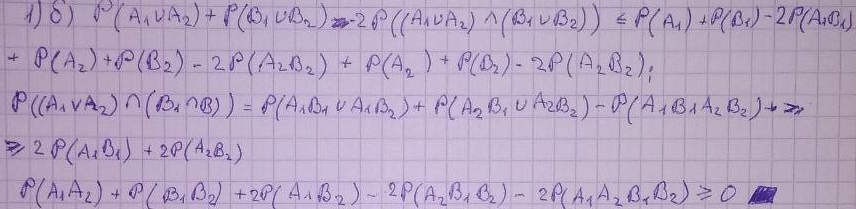 1) б) P(A₁∪A₂) + P(B₁∪B₂) - 2P((A₁∪A₂) ∩ (B₁∪B₂)) ≤ P(A₁) + P(B₁) - 2P(A₁B₁)
+ P(A₂) + P(B₂) - 2P(A₂B₂) + P(A₂) + P(B₂) - 2P(A₂B₂);
P((A₁∪A₂) ∩ (B₁∩B)) = P(A₁B₁ ∪ A₁B₂) + P(A₂B₁ ∪ A₂B₂) - P(A₁B₁A₂B₂) + ≥
≥ 2P(A₁B₁) + 2P(A₂B₂)
P(A₁A₂) + P(B₁B₂) + 2P(A₁B₂) - 2P(A₂B₁B₂) - 2P(A₁A₂B₁B₂) ≥ 0